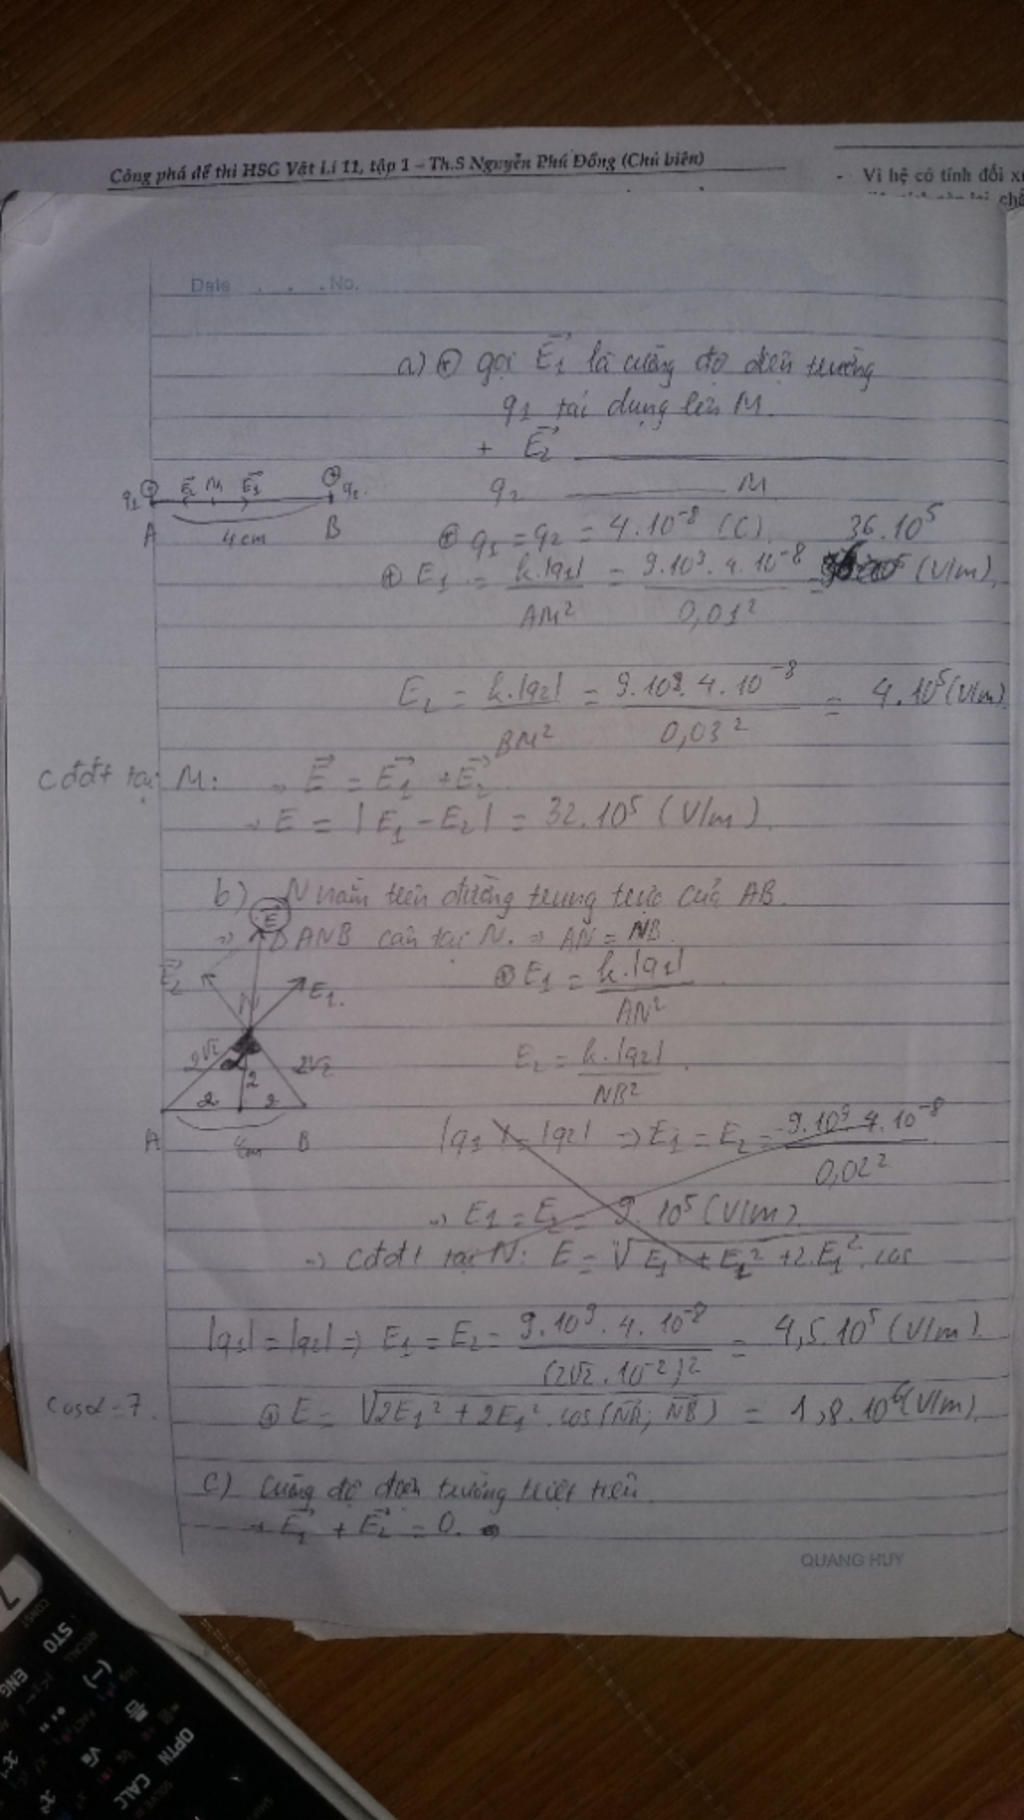 Công phá đề thi HSG Vật Lí 11, tập 1 - Th.S Nguyễn Phú Đồng (Chủ biên)
- Vì hệ có tính đối
Date . . . No.
a) ⊕ gọi E₁→ là cường độ điện trường
q₁ tác dụng lên M.
+ E₂→ ———
q₂ ——— M
q₁ ⊕ E₂→ M E₁→ ⊕ q₂
A 4cm B
⊕ q₁ = q₂ = 4.10⁻⁸ (C)
36.10⁵
⊕ E₁ = k.|q₁| / AM² = 9.10⁹.4.10⁻⁸ / 0,01² = (V/m)
E₂ = k.|q₂| / BM² = 9.10⁹.4.10⁻⁸ / 0,03² = 4.10⁵ (V/m)
Cđđt tại M: → E→ = E₁→ + E₂→
→ E = |E₁ - E₂| = 32.10⁵ (V/m)
b) N nằm trên đường trung trực của AB.
→ Δ ANB cân tại N. → AN = NB
⊕ E₁ = k.|q₁| / AN²
E₂ = k.|q₂| / NB²
E→
E₂→ N E₁.
2√2 α 2 2√2
2 2
A 4cm B
|q₁| = |q₂| → E₁ = E₂ = 9.10⁹.4.10⁻⁸ / 0,02²
→ E₁ = E₂ = 9 10⁵ (V/m)
→ Cđđt tại N: E = √(E₁ + E₁² + 2.E₁².cos
|q₁| = |q₂| → E₁ = E₂ = 9.10⁹.4.10⁻⁸ / (2√2.10⁻²)² = 4,5.10⁵ (V/m)
cosα = 7. ⊕ E = √(2E₁² + 2E₁².cos(NA→; NB→)) = 1,8.10⁶ (V/m)
c) Cường độ điện trường triệt tiêu
→ E₁→ + E₂→ = 0.
QUANG HUY
7
CONST
STO
RECALL
ENG
(-)
FACT
OPTN
CALC
SOLVE